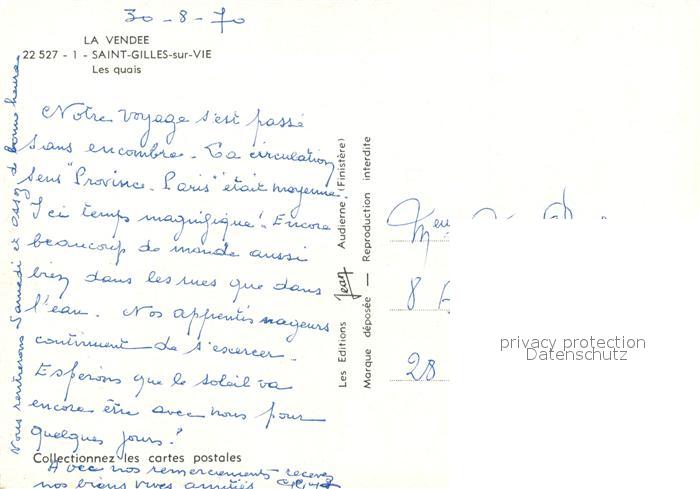 30-8-70
LA VENDEE
22 527 - 1 - SAINT-GILLES-sur-VIE
Les quais
Notre voyage s'est passé
sans encombre. La circulation
sens "Province. Paris" était moyenne.
Ici temps magnifique! Encore
beaucoup de monde aussi
bien dans les rues que dans
l'eau. Nos apprentis nageurs
continuent de s'exercer.
Espérons que le soleil va
encore être avec nous pour
quelques jours!
Collectionnez les cartes postales
Avec nos remerciements recevez
nos biens vives amitiés
Nous rentrerons Samedi et assez de bonne heure
Les Editions Jean Audierne (Finistère)
Marque déposée — Reproduction interdite
8
28
privacy protection
Datenschutz